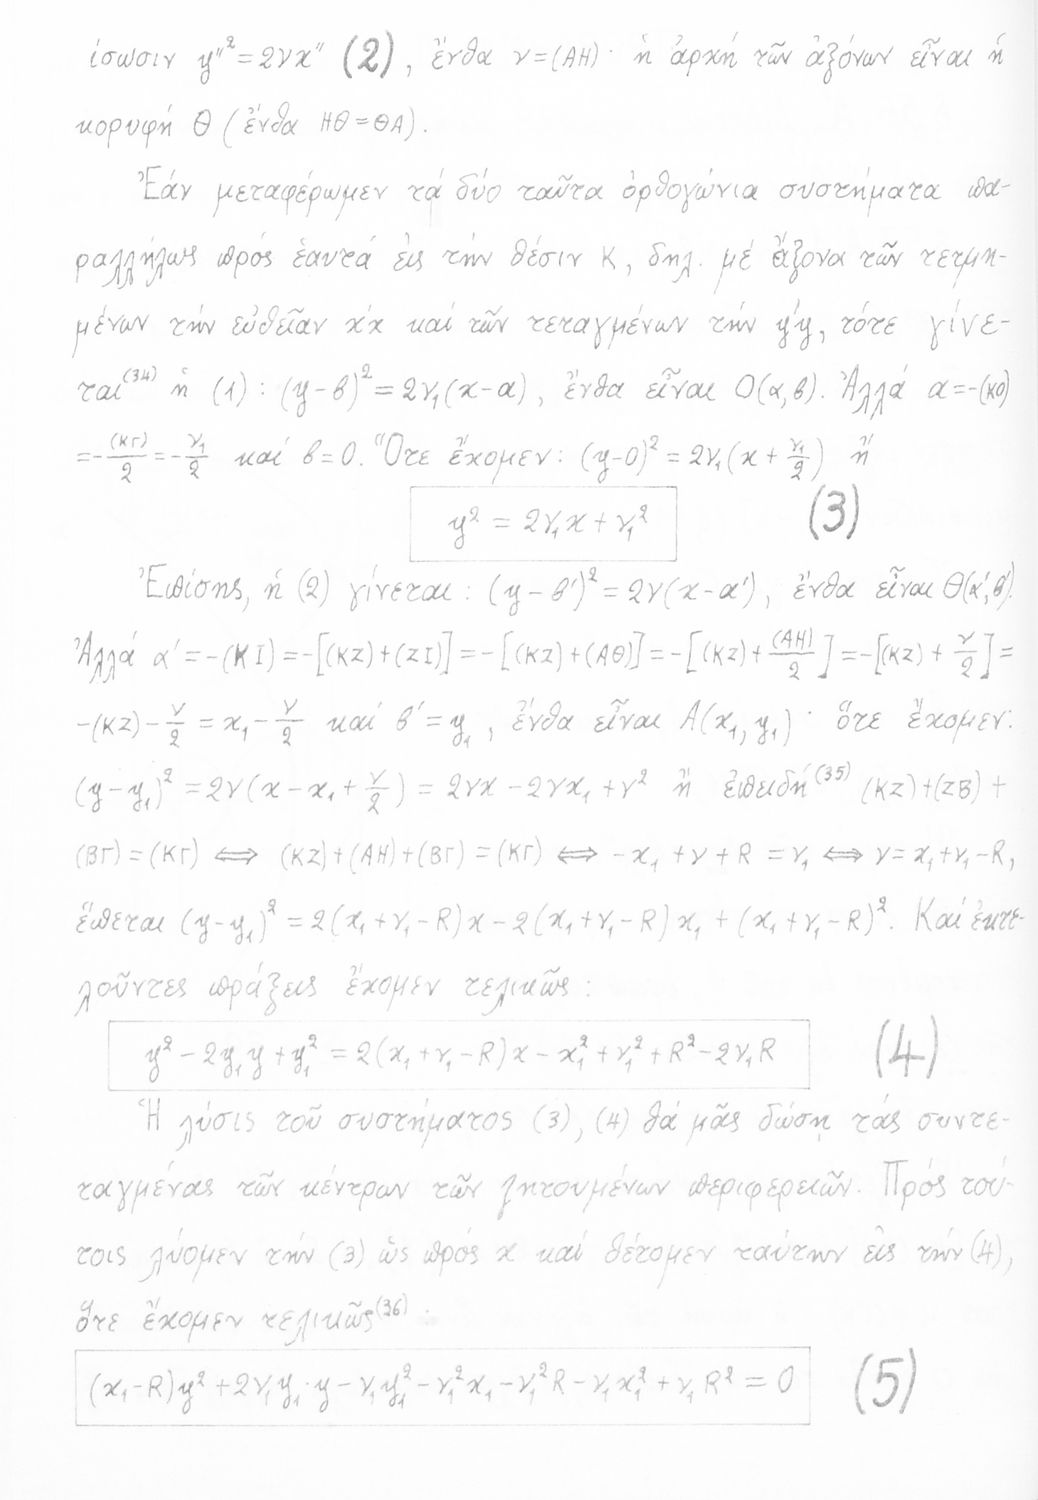 ίσωσιν y''² = 2νx'' (2), ἔνθα ν=(ΑΗ)· ἡ ἀρχή τῶν ἀξόνων εἶναι ἡ
κορυφή Θ (ἔνθα ΗΘ=ΘΑ).
Ἐάν μεταφέρωμεν τά δύο ταῦτα ὀρθογώνια συστήματα πα-
ραλλήλως πρός ἑαυτά εἰς τήν θέσιν Κ, δηλ. μέ ἄξονα τῶν τετμη-
μένων τήν εὐθεῖαν x'x καί τῶν τεταγμένων τήν y'y, τότε γίνε-
ται⁽³⁴⁾ ἡ (1): (y-β)² = 2ν₁(x-α), ἔνθα εἶναι Ο(α,β). Ἀλλά α=-(ΚΟ)
=-(ΚΓ)/2=-ν₁/2 καί β=0. Ὅτε ἔχομεν: (y-0)² = 2ν₁(x+ν₁/2) ἤ
y² = 2ν₁x+ν₁² (3)
Ἐπίσης, ἡ (2) γίνεται: (y-β')² = 2ν(x-α'), ἔνθα εἶναι Θ(α',β').
Ἀλλά α'=-(ΚΙ)=-[(ΚΖ)+(ΖΙ)]=-[(ΚΖ)+(ΑΘ)]=-[(ΚΖ)+(ΑΗ)/2]=-[(ΚΖ)+ν/2]=
-(ΚΖ)-ν/2=x₁-ν/2 καί β'=y₁, ἔνθα εἶναι Α(x₁,y₁)· ὅτε ἔχομεν:
(y-y₁)²=2ν(x-x₁+ν/2)=2νx-2νx₁+ν² ἤ ἐπειδή⁽³⁵⁾ (ΚΖ)+(ΖΒ)+
(ΒΓ)=(ΚΓ) ⟺ (ΚΖ)+(ΑΗ)+(ΒΓ)=(ΚΓ) ⟺ -x₁+ν+R=ν₁ ⟺ ν=x₁+ν₁-R,
ἕπεται (y-y₁)²=2(x₁+ν₁-R)x-2(x₁+ν₁-R)x₁+(x₁+ν₁-R)². Καί ἐκτε-
λοῦντες πράξεις ἔχομεν τελικῶς:
y²-2y₁y+y₁²=2(x₁+ν₁-R)x-x₁²+ν₁²+R²-2ν₁R (4)
Ἡ λύσις τοῦ συστήματος (3), (4) θά μᾶς δώσῃ τάς συντε-
ταγμένας τῶν κέντρων τῶν ζητουμένων περιφερειῶν. Πρός τού-
τοις λύομεν τήν (3) ὡς πρός x καί θέτομεν ταύτην εἰς τήν (4),
ὅτε ἔχομεν τελικῶς⁽³⁶⁾:
(x₁-R)y²+2ν₁y₁·y-ν₁y₁²-ν₁²x₁-ν₁²R-ν₁x₁²+ν₁R²=0 (5)